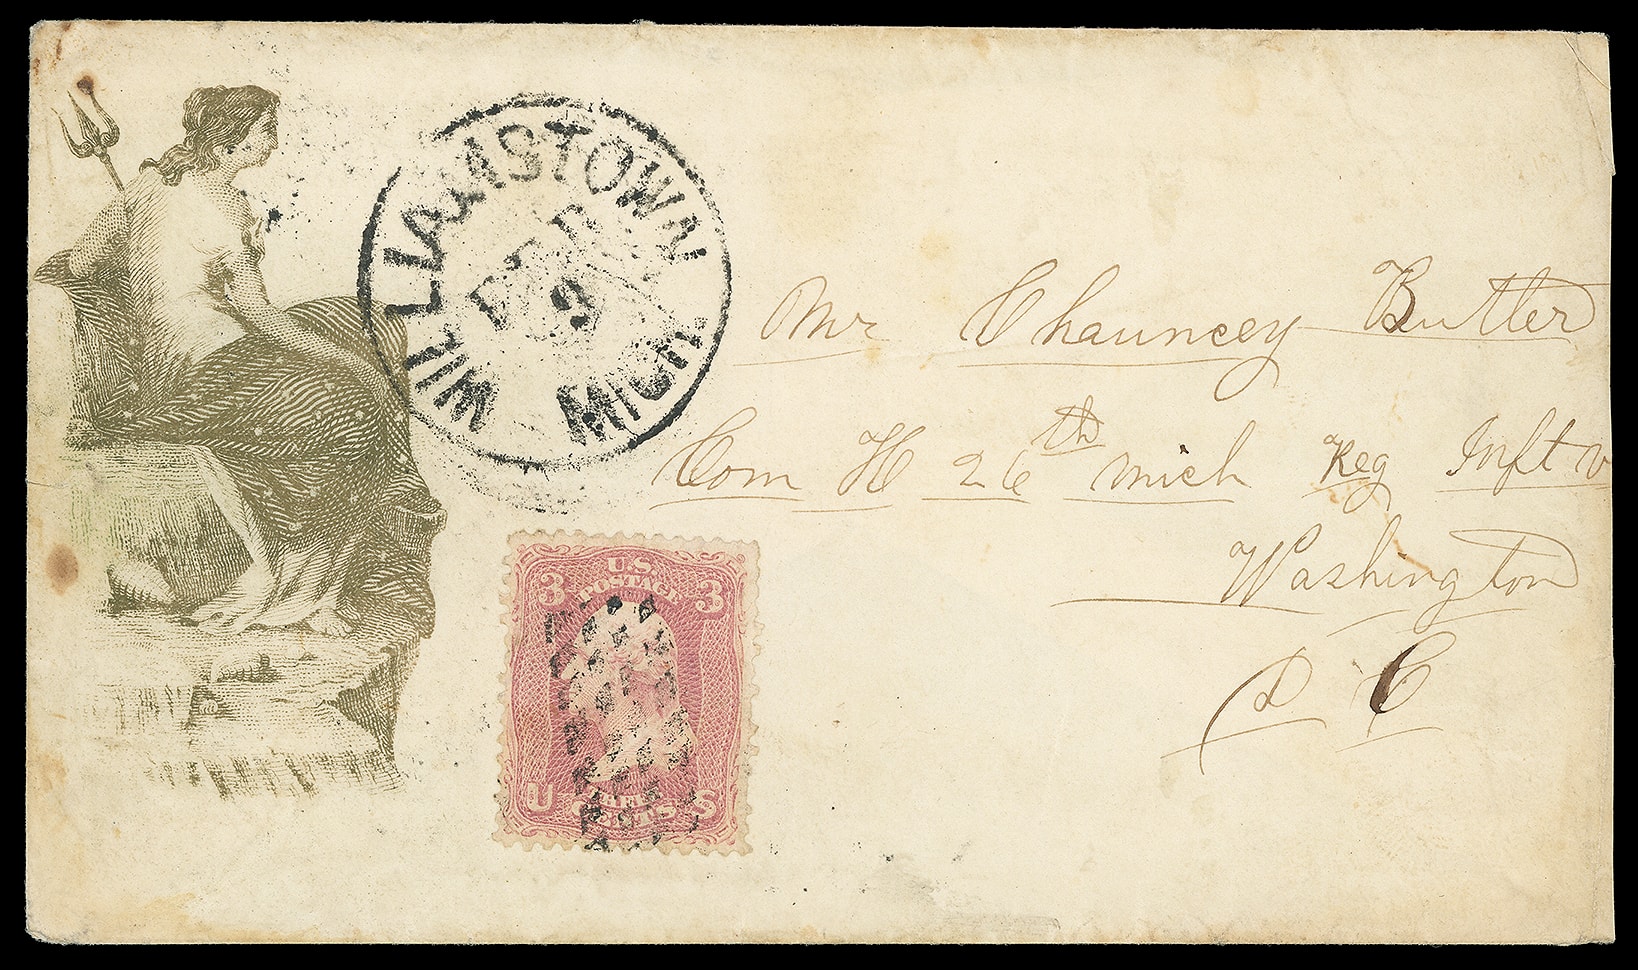 WILLIAMSTOWN
9
MICH.
Mr Chauncey Butler
Com H 26th Mich Reg Inftv
Washington
D C
U.S.
POSTAGE
3 3
THREE
U CENTS S